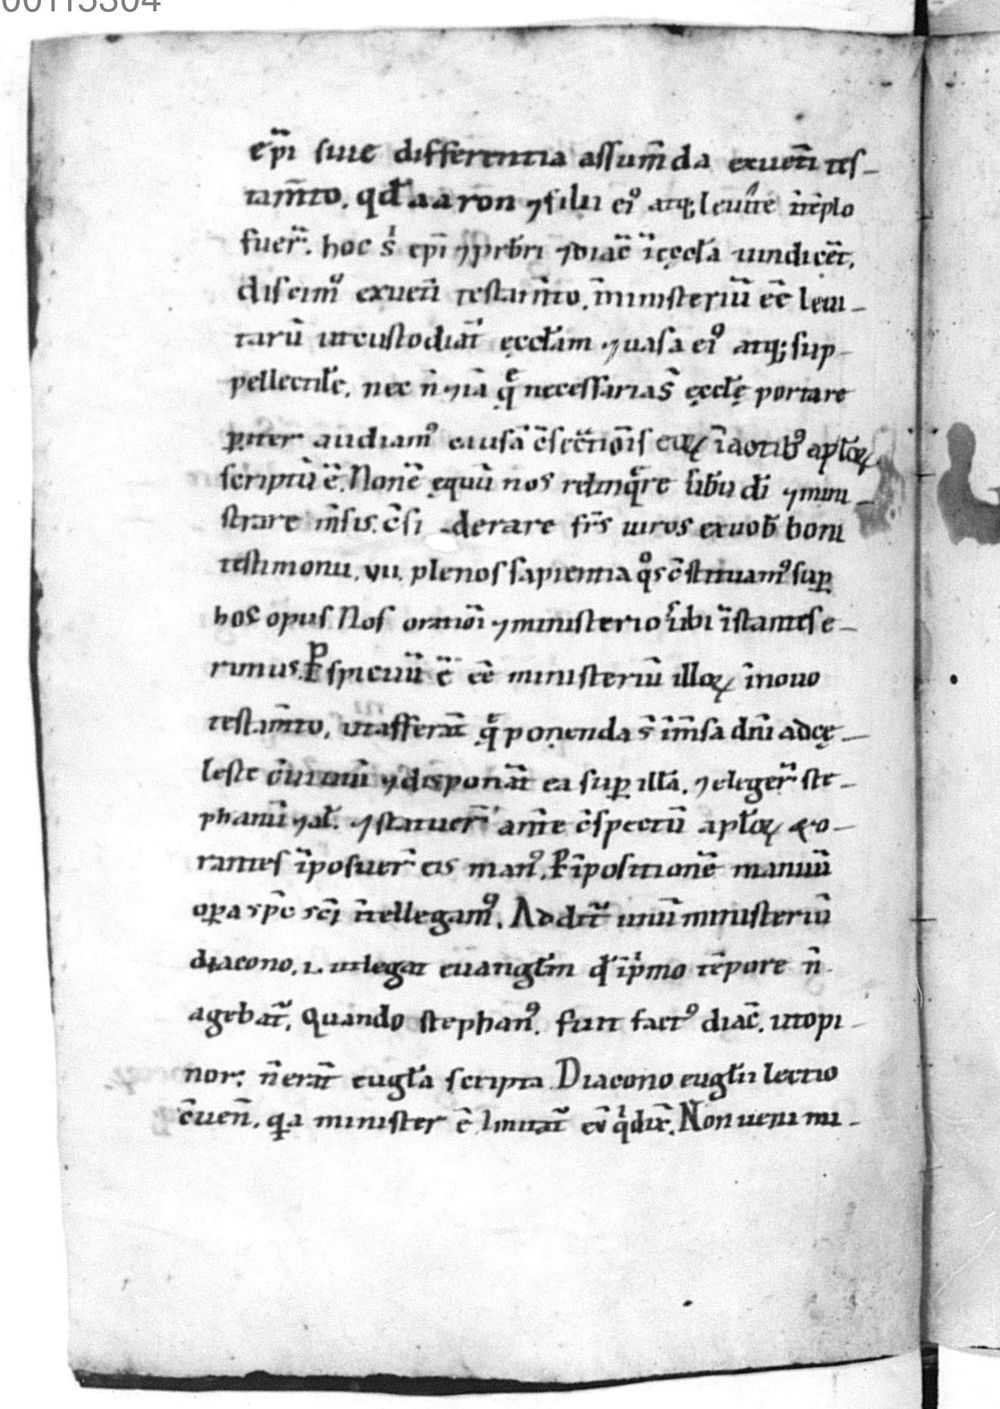 00115304
ep̄i siue differentia assum̄da exueti̅ tes-
tam̄to. qd̄ aaron ⁊ filii ei᷒ atq; leuite ī te̅plo
fuer̄. hoc s̄ ep̄i ⁊ prb̄ri ⁊ diac̄ ī ęccl̄a uindicēt.
discim᷒ exueti̅ testam̄to. ministeriū eē leui-
tarū ut custodiāt ęccl̄am ⁊ uasa ei᷒ atq; sup-
pellectilē. nec n̄ ⁊ iā q̄ necessaria s̄ ęccl̄ę portare
scriptū ē. Non ē ęquū nos relinq̄re u̅bū dī ⁊ mini-
strare m̄sis. c̄siderare fr̄s uiros exuob̄ boni
testimonii. vii. plenos sapientia q᷒s c̄stituam᷒ sup̱
hoc opus Nos oratiōi ⁊ ministerio u̅bi īstantes e-
rimus. P̱spicuū ē eē ministeriū illoꝝ ī nouo
testam̄to. ut afferāt q̄ ponenda s̄ ī m̄sa dn̄i ad cę-
leste c̄uiuiū ⁊ disponāt ea sup̱ illā. ⁊ eleger̄ ste-
phanū ⁊ al̄. ⁊ statuer̄ ante c̄spectū apl̄oꝝ & o-
rantes īposuer̄ eis man᷒. P̱ īpositionē manuū
op̱a sp̄c sc̄i ītellegam᷒. Additr̄ unū ministeriū
diacono. i. ut legat euangl̄m qd̄ ī p̄mo tēpore n̄
agebat̄. Quando stephan᷒. fuit fact᷒ diac̄. ut opi-
nor. n̄ erāt eugl̄a scripta Diacono eugl̄ii lectio
c̄uen̄. q̱a minister ē imitat̄ eū q̇ dix̄. Non ueni mi-